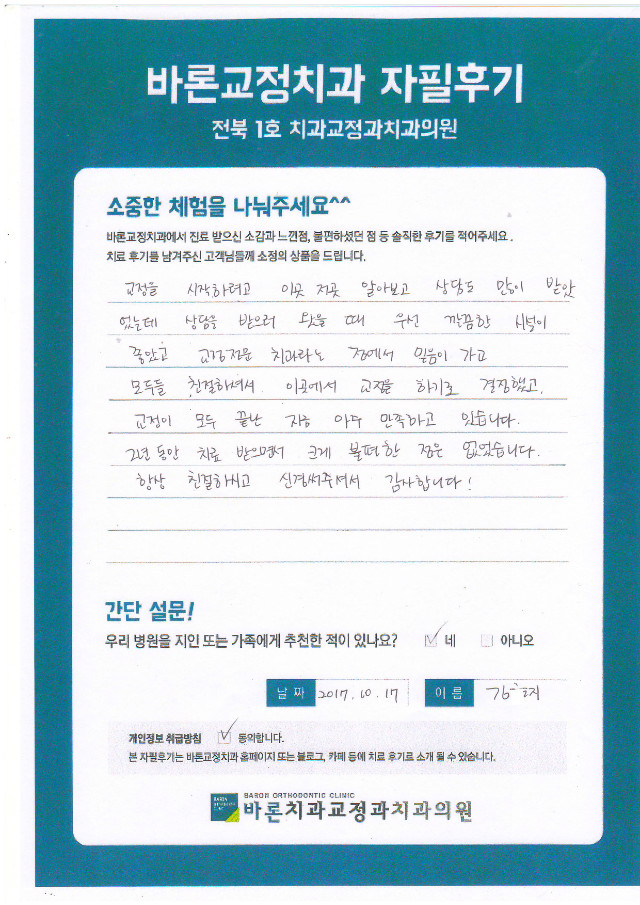 바론교정치과 자필후기
전북 1호 치과교정과치과의원
소중한 체험을 나눠주세요^^
바론교정치과에서 진료 받으신 소감과 느낀점, 불편하셨던 점 등 솔직한 후기를 적어주세요.
치료 후기를 남겨주신 고객님들께 소정의 상품을 드립니다.
교정을 시작하려고 이곳 저곳 알아보고 상담도 많이 받았
었는데 상담을 받으러 왔을 때 우선 깔끔한 시설이
좋았고 교정전문 치과라는 점에서 믿음이 가고
모두들 친절하셔서 이곳에서 교정을 하기로 결정했고,
교정이 모두 끝난 지금 아주 만족하고 있습니다.
2년 동안 치료 받으면서 크게 불편한 점은 없었습니다.
항상 친절하시고 신경써주셔서 감사합니다!
간단 설문!
우리 병원을 지인 또는 가족에게 추천한 적이 있나요? 네 아니오
날 짜 2017. 10. 17 이 름
개인정보 취급방침 동의합니다.
본 자필후기는 바론교정치과 홈페이지 또는 블로그, 카페 등에 치료 후기로 소개 될 수 있습니다.
BARON ORTHODONTIC CLINIC
바론치과교정과치과의원